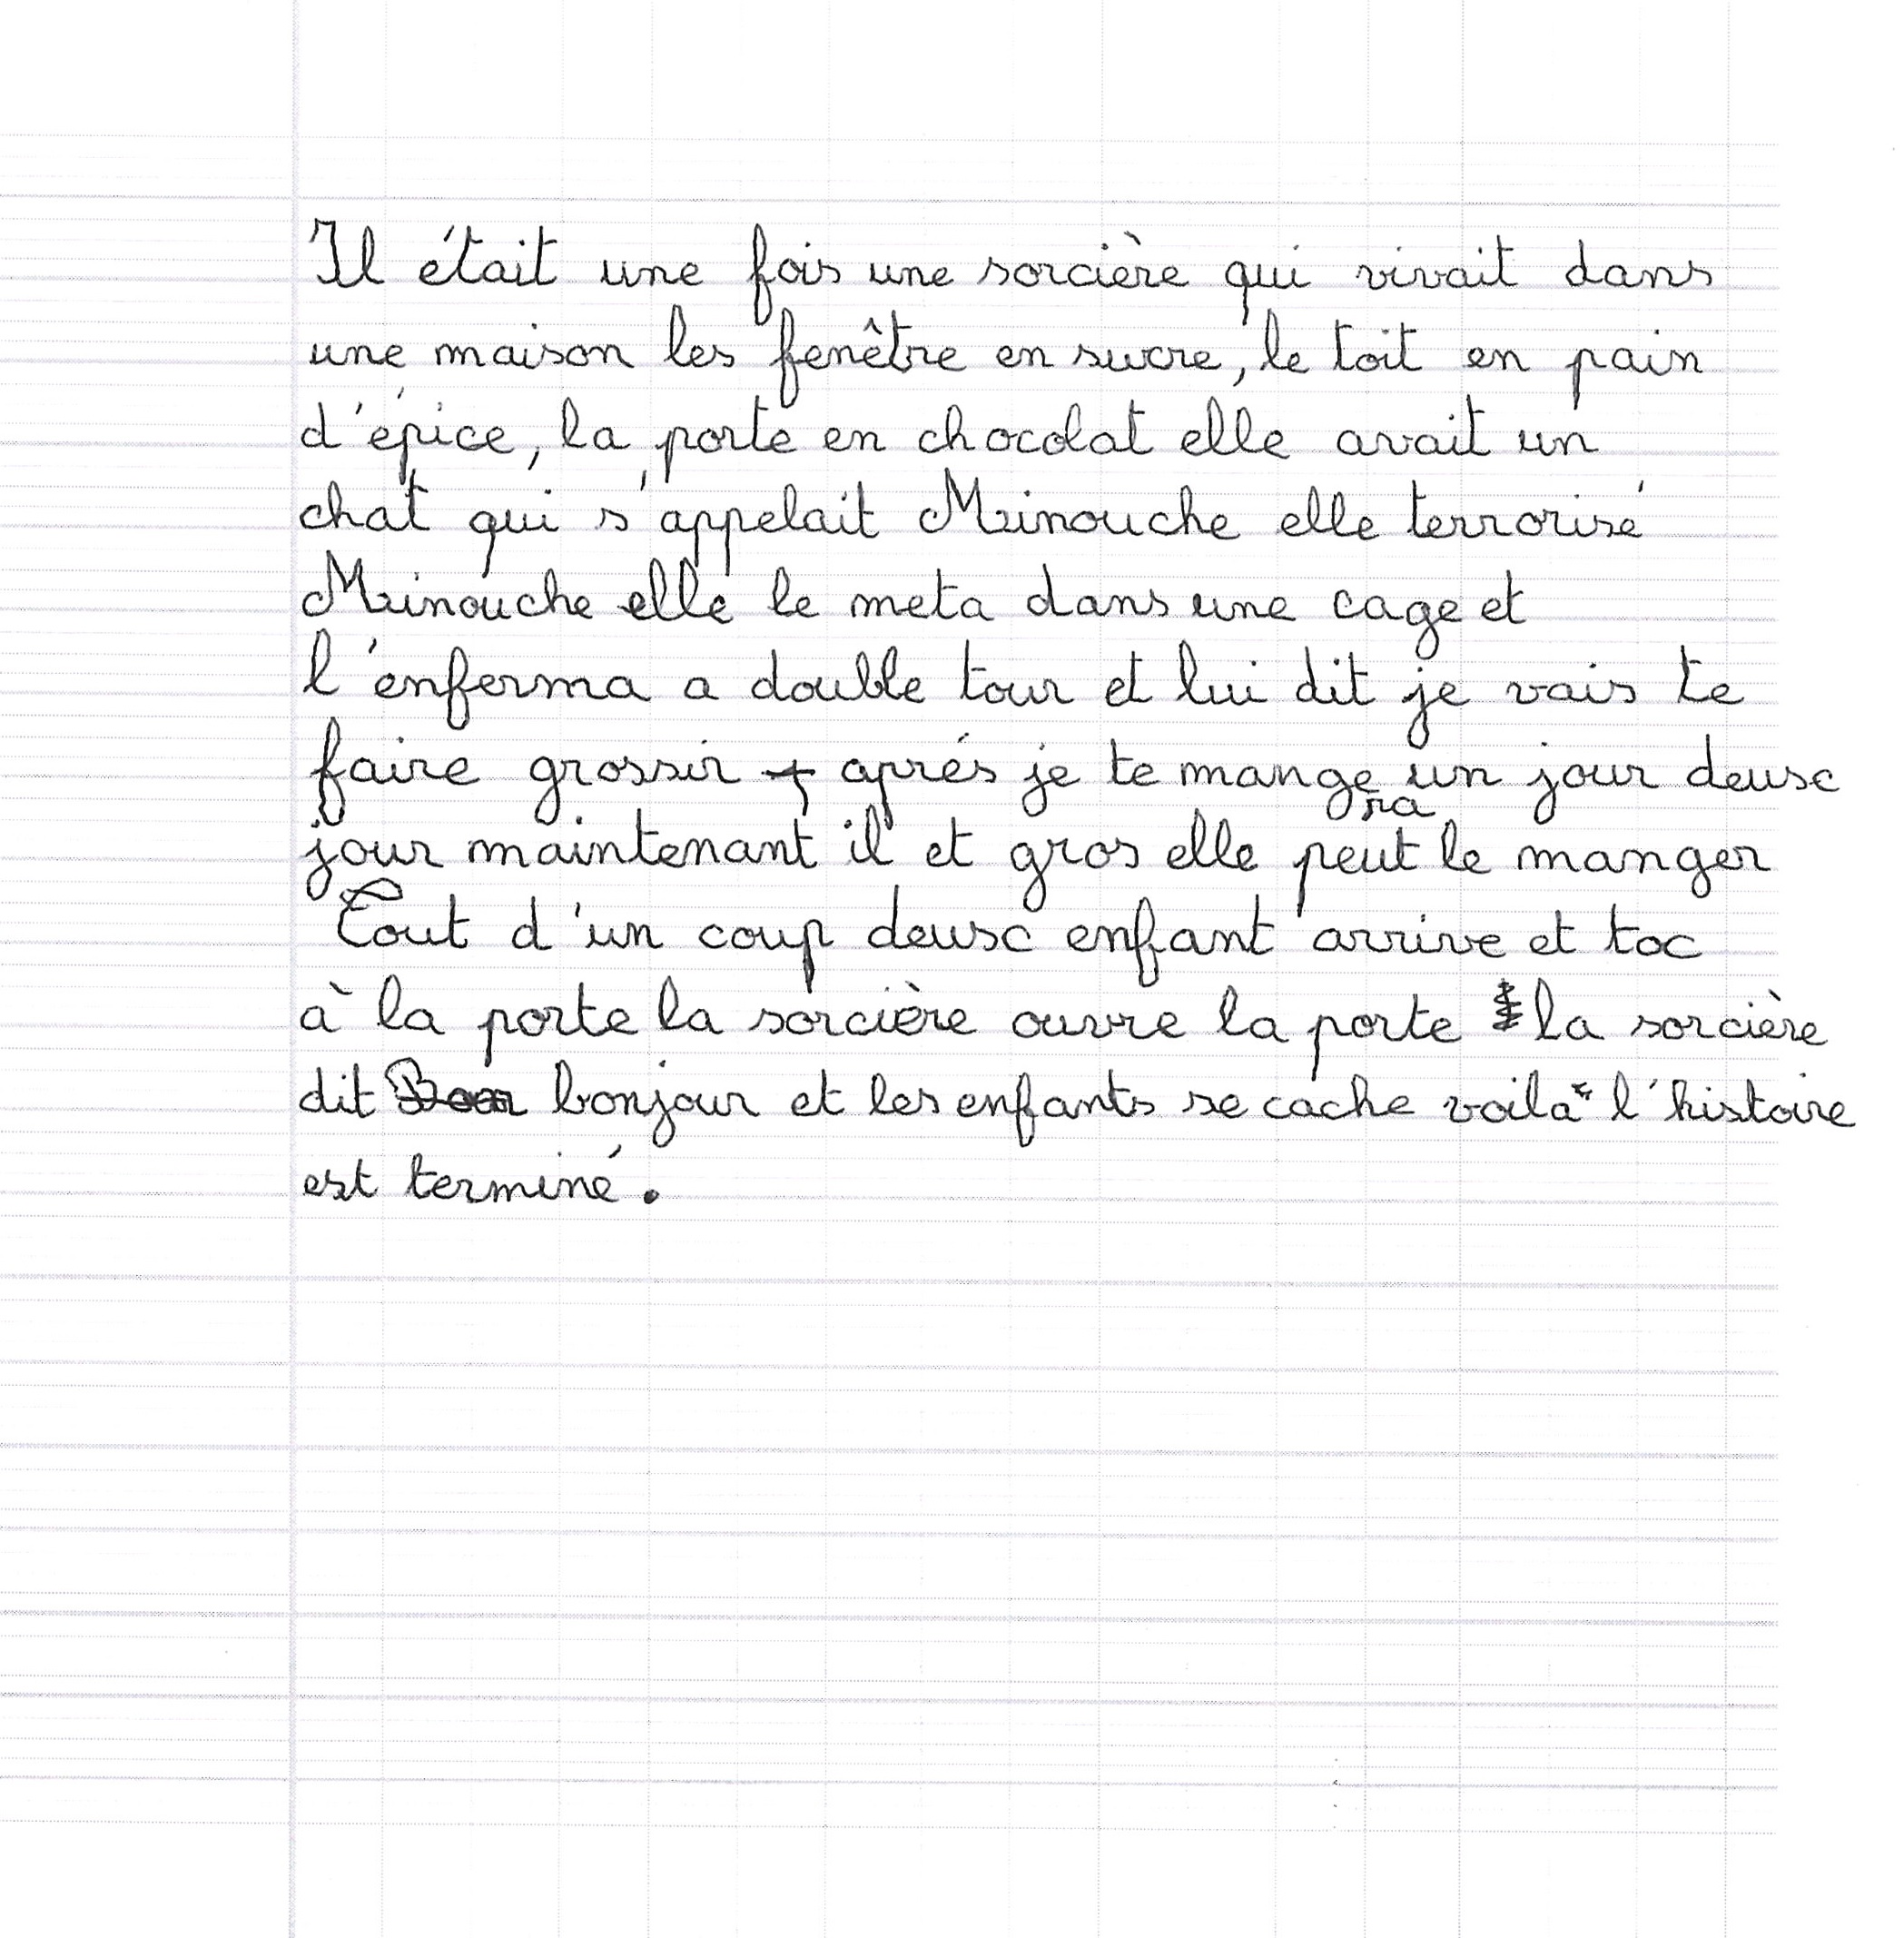 Il était une fois une sorcière qui vivait dans
une maison les fenêtre en sucre, le toit en pain
d'épice, la porte en chocolat elle avait un
chat qui s'appelait Minouche elle terrorisé
Minouche elle le meta dans une cage et
l'enferma a double tour et lui dit je vais te
faire grossir aprés je te mangera un jour deux
jour maintenant il et gros elle peut le manger
Tout d'un coup deux enfant arrive et toc
à la porte la sorcière ouvre la porte la sorcière
dit bonjour et les enfants se cache voila l'histoire
est terminé.